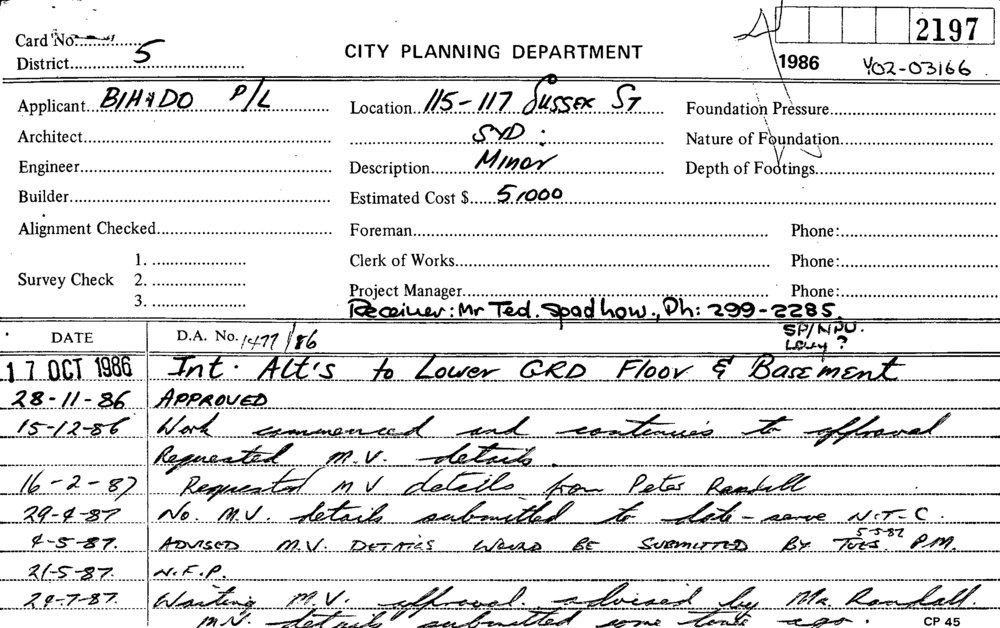 2197
Card No.
District 5
CITY PLANNING DEPARTMENT
1986 Y02-03166
Applicant BIHADO P/L Location 115-117 SUSSEX ST Foundation Pressure
Architect SYD: Nature of Foundation
Engineer Description Minor Depth of Footings
Builder Estimated Cost $ 5,000
Alignment Checked Foreman Phone:
Survey Check 1. 2. 3. Clerk of Works Phone:
Project Manager Phone:
Receiver: Mr Ted. Spadhow., Ph: 299-2285.
DATE D.A. No. 1477/86 SP/NPU.
Levy ?
17 OCT 1986 Int. Alt's to Lower GRD Floor & Basement
28-11-86 APPROVED
15-12-86 Work commenced and continues to approval
Requested M.V. details.
16-2-87 Requested M V details from Peter Randall
29-4-87 No. M.V. details submitted to date - serve N.T.C.
5-5-87
4-5-87. ADVISED M.V. DETAILS WOULD BE SUBMITTED BY TUES. P.M.
21-5-87. N.F.P.
24-7-87. Waiting M.V. approval. advised by Mr. Randall.
M.V. details submitted some time ago.
CP 45